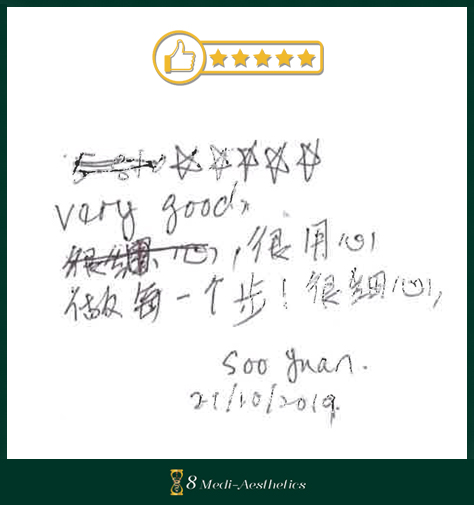 very good,
很细心, 很用心
做每一个步! 很细心,
Soo Yuan.
21/10/2019.
8 Medi-Aesthetics